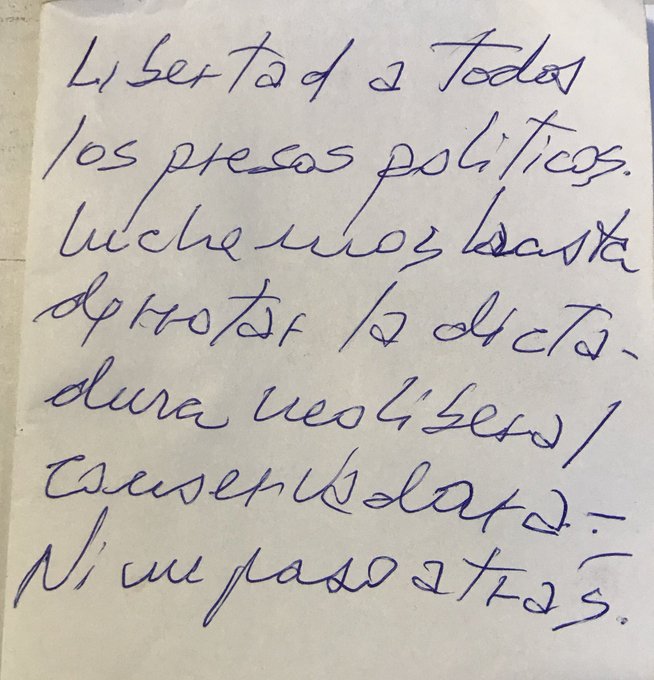 Libertad a todos
los presos politicos.
luchemos hasta
derrotar la dicta-
dura neoliberal
conservadora.-
Ni un paso atras.